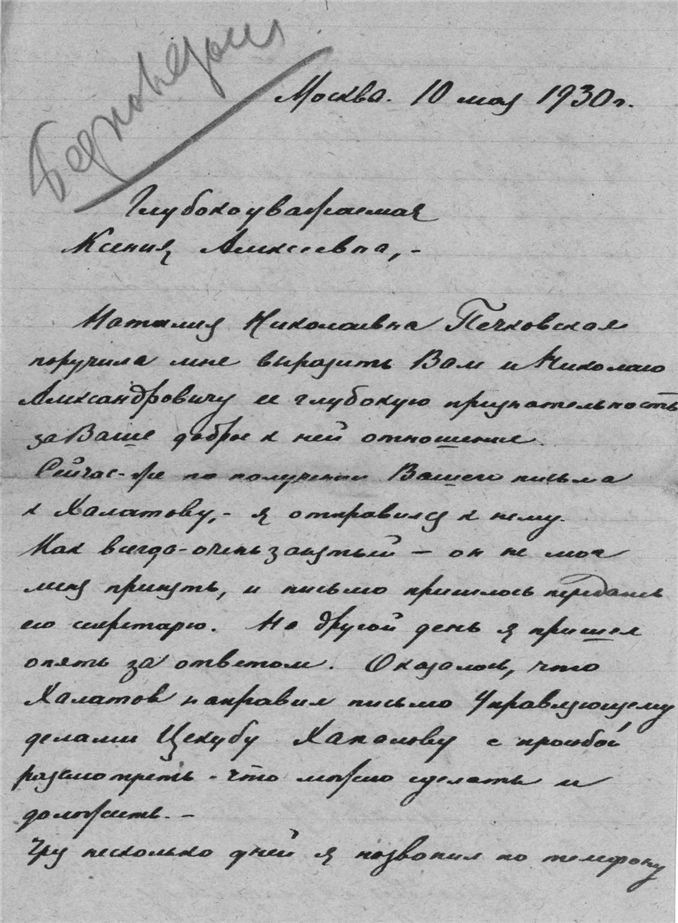 Москва. 10 мая 1930 г.
Глубокоуважаемая
Ксения Алексеевна, -
Наталия Николаевна Печковская
поручила мне выразить Вам и Николаю
Александровичу ее глубокую признательность
за Ваше доброе к ней отношение.
Сейчас-же по получении Вашего письма
к Халатову, - я отправился к нему.
Как всегда - очень занятый - он не мог
меня принять, и письмо пришлось передать
его секретарю. На другой день я пришел
опять за ответом. Оказалось, что
Халатов направил письмо Управляющему
делами Цекубу с просьбой
рассмотреть - что можно сделать и
доложить. -
Чрз несколько дней я позвонил по телефону